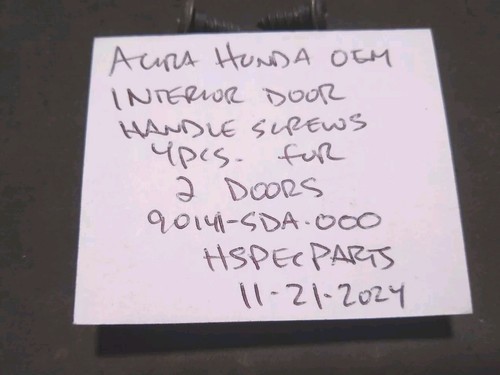 ACURA HONDA OEM
INTERIOR DOOR
HANDLE SCREWS
4PCS. FOR
2 DOORS
90141-SDA-000
HSPECPARTS
11-21-2024